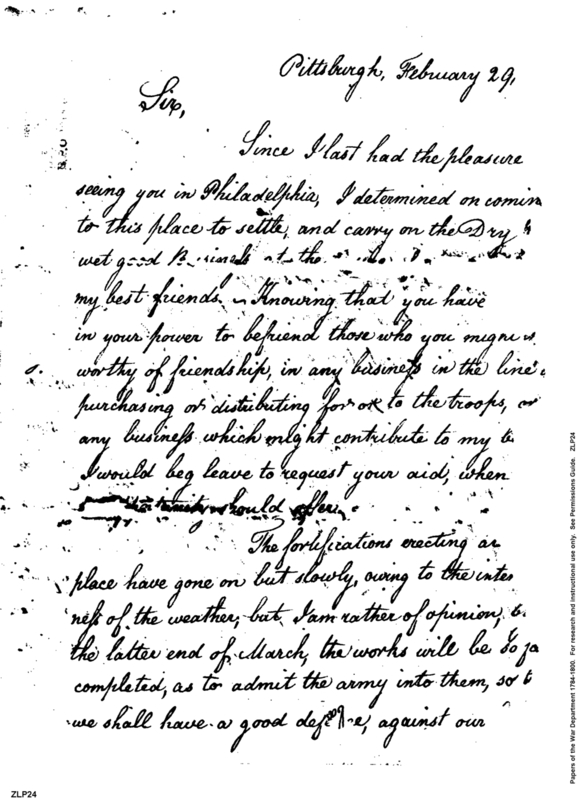 Pittsburgh, February 29,
Sir,
Since I last had the pleasure
seeing you in Philadelphia, I determined on comin
to this place to settle, and carry on the Dry
wet good at the
my best friends. Knowing that you have
in your power to befriend those who you
worthy of friendship, in any business in the line
purchasing or distributing for or to the troops, or
any business which might contribute to my
I would beg leave to request your aid, when
should offer.
The fortifications erecting a
place have gone on but slowly, owing to the inten
ness of the weather, but I am rather of opinion,
the latter end of March, the works will be so fa
completed, as to admit the army into them, so t
we shall have a good against our
ZLP24
Papers of the War Department 1784-1800. For research and instructional use only. See Permissions Guide. ZLP24